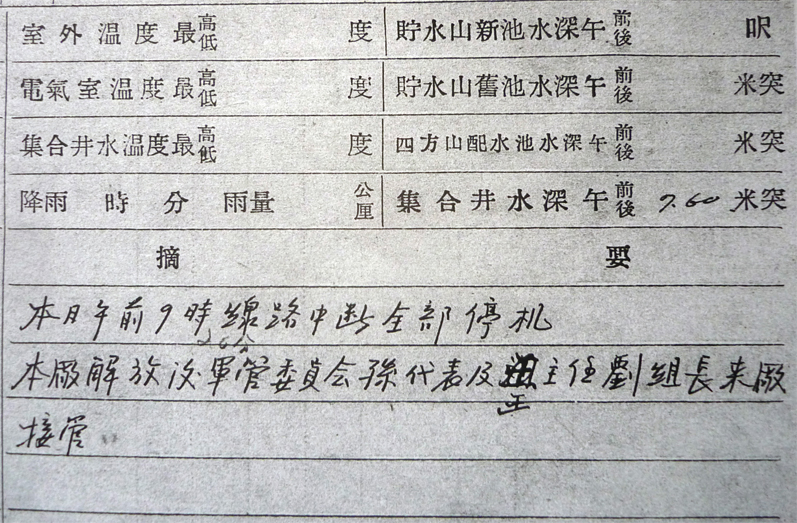 室外温度最高低 度 貯水山新池水深午前後 呎
電氣室温度最高低 度 貯水山舊池水深午前後 米突
集合井水温度最高低 度 四方山配水池水深午前後 米突
降雨 時 分 雨量 公厘 集合井水深午前後 7.60 米突
摘 要
本月午前9時線路中断全部停机
26分
本廠解放后軍管委員会孫代表及主任劉組長来廠
王
接管